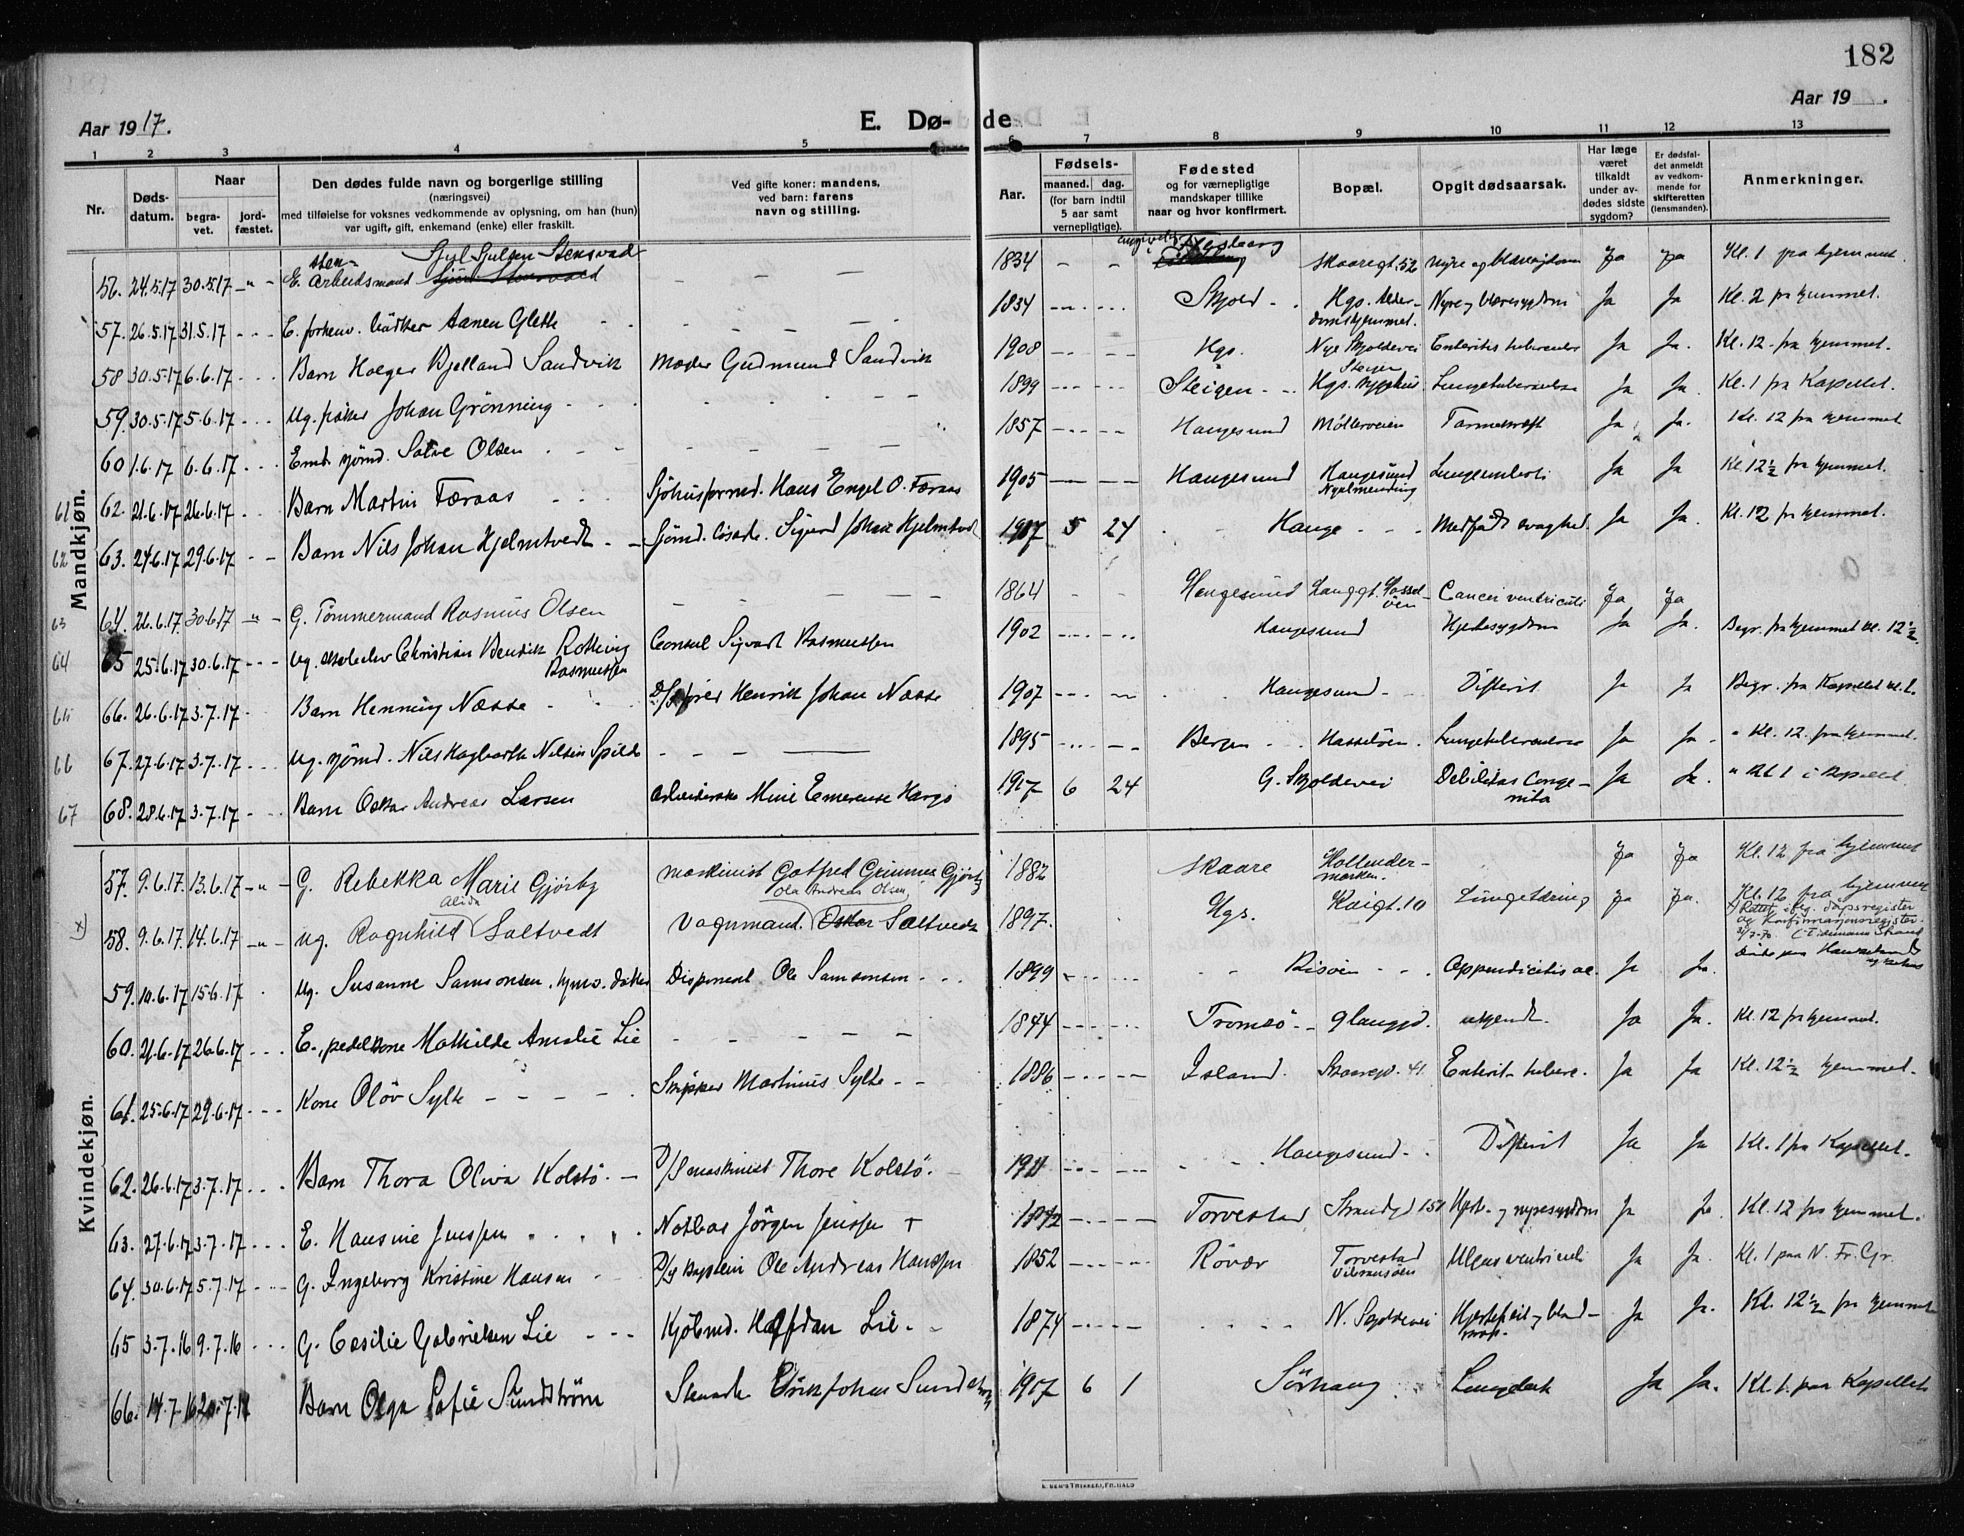 182
Aar 1917.
E. Dø- de
Aar 19 .
1 2 3 4 5 6 7 8 9 10 11 12 13
Nr.
Dødsdatum.
Naar
begravet.
jordfæstet.
Den dødes fulde navn og borgerlige stilling
(næringsvei)
med tilføielse for voksnes vedkommende av oplysning, om han (hun)
var ugift, gift, enkemand (enke) eller fraskilt.
Ved gifte koner: mandens,
ved barn: farens
navn og stilling.
Aar.
Fødsels-
maaned. dag.
(for barn indtil
5 aar samt
vernepligtige).
Fødested
og for værnepligtige
mandskaper tillike
naar og hvor konfirmert.
Bopæl.
Opgit dødsaarsak.
Har læge
været
tilkaldt
under av-
dødes sidste
sygdom?
Er dødsfal-
det anmeldt
av vedkom-
mende for
skifteretten
(lensmanden).
Anmerkninger.
Mandkjøn.
56. 24.5.17 30.5.17 -"- E. Arbeidsmand Sjul Sjulsen Stensvad 1834 - - Skaaregt. 52 Nyre og blæresygdom Ja Ja Kl. 1 fra hjemmet.
57. 26.5.17 31.5.17 E. forhenv. bødker Aanen Glette 1834 Skjold Hgs. Alder-
domshjemmet. Nyre og blæresygdom Ja Ja Kl. 2 fra hjemmet.
58 30.5.17 6.6.17 Barn Holger Bjelland Sandvik Mægler Gudmund Sandvik 1908 Hgs. Nye Skjoldevei Enteritis tubercul. Ja Ja. Kl. 12 fra hjemmet.
59. 30.5.17 5.6.17 Ug. fisker Johan Grønning 1899 Steigen Steigen
Hgs. sygehus Lungetuberculose Ja Ja. Kl. 1 fra Kapellet.
60 1.6.17 6.6.17 Enk. sjømd. Salve Olsen 1857 Haugesund Møllerveien Tarmkræft Ja Ja. Kl. 12 fra hjemmet
61 62. 21.6.17 26.6.17 Barn Martin Færaas Sjøhusformd. Hans Engel O. Færaas 1905 Haugesund Haugesund Ja Ja Kl. 12½ fra hjemmet.
62 63. 24.6.17 29.6.17 Barn Nils Johan Hjelmtvedt Sjømd. Sigurd Johan Hjelmtvedt 1917 5 24 Hauge Medfødt svaghed. Ja Ja. Kl. 12 fra hjemmet.
63 64. 26.6.17 30.6.17 -"- G. Tømmermand Rasmus Olsen 1864 - - Haugesund Hauggt. Hasseløen Cancer ventriculi Ja Ja
64 65 25.6.17 30.6.17 Ug. skoleelev Christian Bendix Rasmussen Consul Sigvart Rasmussen 1902 Haugesund Hjertesygdom Ja Ja. Begr. fra hjemmet kl. 12½
65 66. 26.6.17 3.7.17 Barn Henning Næsse D/S fører Henrik Johan Næsse 1907 Haugesund Difterit Ja Ja Begr. fra Kapellet kl. 1.
66 67. 27.6.17 3.7.17 Ug. sjømd. Nils Hagbarth Nilsen Spilde 1895 Bergen Hasseløen Lungetuberculose Ja Ja " Kl. 12 fra hjemmet.
67 68. 28.6.17 3.7.17 Barn Oskar Andreas Larsen Arbeiderske Mine Emerense Hargo 1917 6 24 G. Skjoldevei Debilitas conge-
nita Ja Ja. " Kl. 1 i Kapellet
Kvindekjøn.
57. 9.6.17. 13.6.17 -"- G. Rebekka Marie Gjørby Maskinist Gotfred Grimner Gjørby 1882 Skaare Hollender-
marken. Ja Ja Kl. 12 fra hjemmet
x) 58. 9.6.17. 14.6.17 -"- Ug. Ragnhild Alida Saltvedt Vognmand Ola Andreas Olsen Saltvedt 1897. Hgs. Kaigt. 10 Ja Ja. Kl. 12 fra hjemmet
x) Rettet i flg. dåpsregister
og konfirmasjonsregister.
59. 10.6.17 15.6.17 Ug. Susanne Samsonsen, hjmv. datter Disponent Ole Samsonsen 1899 Risøen Appendicitis ac. Ja Ja.
60. 21.6.17 26.6.17 E. Mathilde Amalie Lie 1844 Tromsø ukjendt. Ja Ja. Kl. 12 fra hjemmet.
61. 25.6.17 29.6.17 Kone Oløv Sylte Skipper Martinus Sylte 1886 Island. Skaaregt. 41 Enterit. tuberc. Ja Ja Kl. 12½ hjemmet.
62. 26.6.17 3.7.17 Barn Thora Oliva Kolstø D/S maskinist Thore Kolstø. 1911 Haugesund Difterit Ja Ja Kl. 1 fra Kapellet.
63. 27.6.17 3.7.17 E. Hansine Jenssen Notbas Jørgen Jenssen + Torvestad Strandgt 151 Hjerte- og nyresygdom Ja Ja. Kl. 12 fra hjemmet.
64. 30.6.17 5.7.17 G. Ingeborg Kristine Hansen Ole Andreas Hanssen 1852 Røvær Torvestad
Vibrandsøen Ulcus ventriculi Ja Ja. Kl. 1 paa N. Fr. Gr.
65 3.7.16 9.7.16 G. Cesilie Gabrielsen Lie Kjøbmd. Halfdan Lie 1874 N. Skjoldevei Ja Ja. Kl. 12½ fra hjemmet
66. 14.7.16 20.7.17 Barn Olga Sofie Sundstrøm Erik Johan Sundstrøm 1917 6 1 Sørhaug Ja Ja. Kl. 1. paa Kapellet